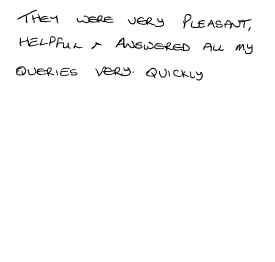 THEY WERE VERY PLEASANT,
HELPFUL & ANSWERED ALL MY
QUERIES VERY. QUICKLY